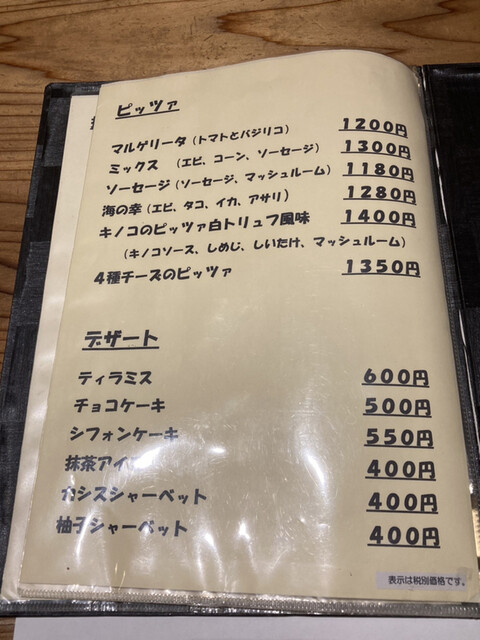 ピッツァ
マルゲリータ（トマトとバジリコ） 1200円
ミックス （エビ、コーン、ソーセージ） 1300円
ソーセージ（ソーセージ、マッシュルーム） 1180円
海の幸（エビ、タコ、イカ、アサリ） 1280円
キノコのピッツァ白トリュフ風味 1400円
（キノコソース、しめじ、しいたけ、マッシュルーム）
4種チーズのピッツァ 1350円
デザート
ティラミス 600円
チョコケーキ 500円
シフォンケーキ 550円
抹茶アイス 400円
カシスシャーベット 400円
柚子シャーベット 400円
表示は税別価格です。